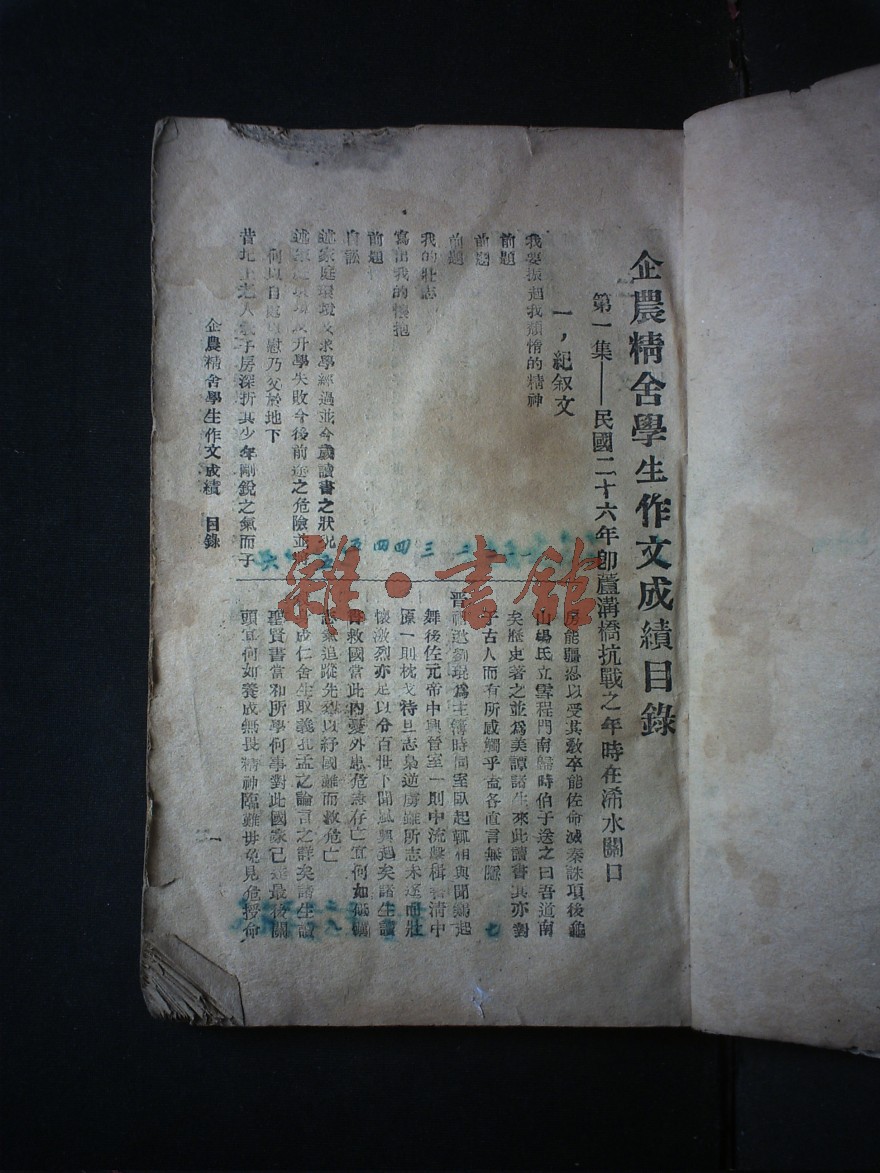 企農精舍學生作文成績目錄
第一集——民國二十六年卽蘆溝橋抗戰之年時在浠水關口
一，紀叙文
我要振起我頹惰的精神
前題
前題
前題
我的壯志
寫出我的懷抱
前題
自訟
述家庭環境及求學經過並今歲讀書之狀況
升學失敗今後前途之危險並
何以自處 慰乃父於地下
昔圯上老人 子房深折其少年剛銳之氣而子
房能彊忍以受其教卒能佐命滅秦誅項後龜
山楊氏立雪程門南歸時伯子送之曰吾道南
矣歷史著之並爲美譚諸生來此讀書其亦對
于古人而有所感觸乎盍各直言無隱
晋祖逖劉琨爲主簿時同室臥起輒相與聞鷄起
舞後佐元帝中興晉室一則中流擊楫誓清中
原一則枕戈待旦志梟逆虜雖所志未遂而壯
懷激烈亦足以分百世下聞風興起矣諸生讀
書救國當此內憂外患危急存亡宜何如砥礪
志氣追蹤先 以紓國難而救危亡
成仁舍生取義孔孟之論言之詳矣諸生讀
聖賢書當和所學何事對此國家已達最後關
頭宜何如養成無畏精神臨難毋免見危授命
二 三 四 四 五
六
七
企農精舍學生作文成績 目錄
一
雜·書館